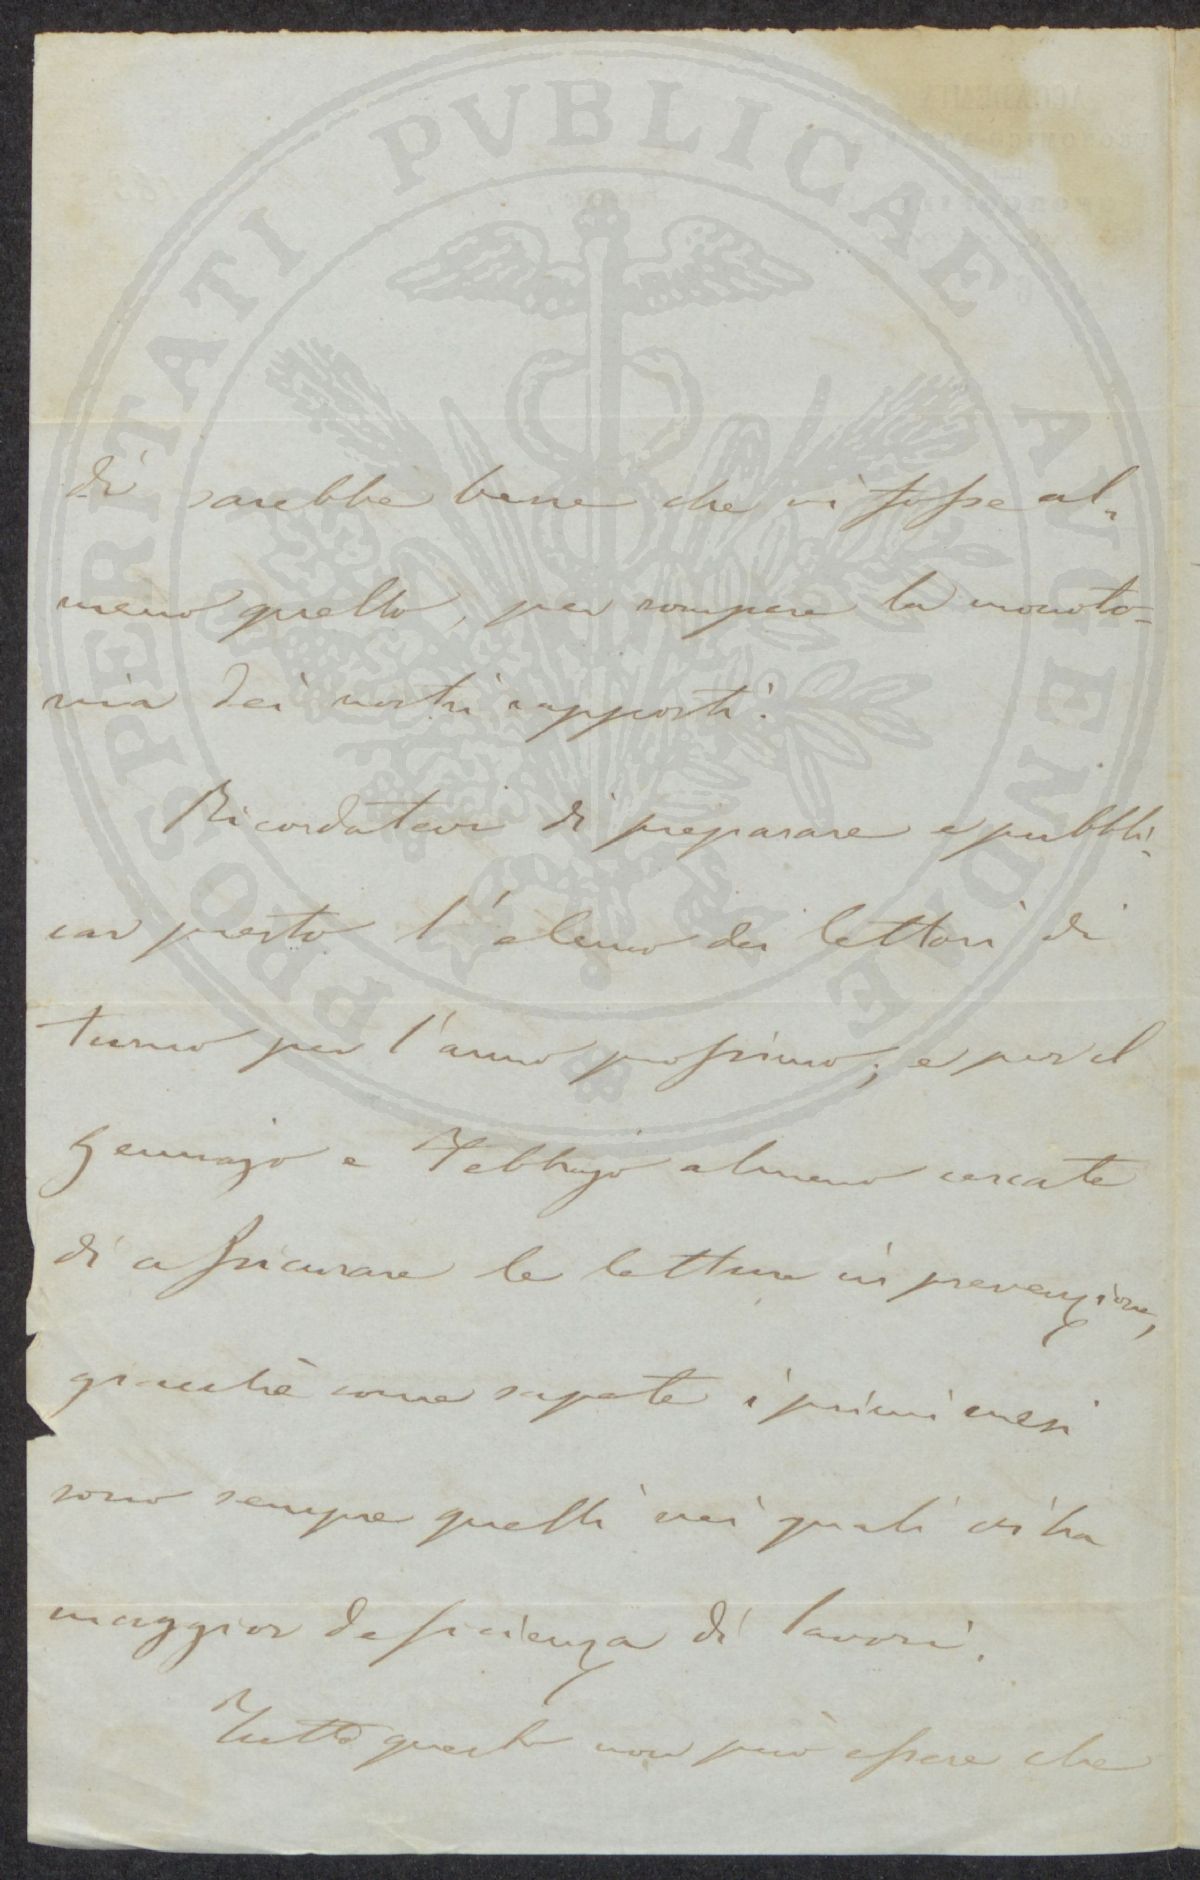 PROSPERITATI PVBLICAE AVGENDAE
di sarebbe bene che vi fosse al-
meno quello, per rompere la monoto-
nia dei nostri rapporti.
Ricordatevi di preparare e pubbli-
car presto l'elenco dei lettori di
turno per l'anno prossimo; e per il
Gennajo e Febbrajo almeno cercate
di assicurare le letture in prevenzione,
giacchè come sapete i primi mesi
sono sempre quelli nei quali vi ha
maggior deficienza di lavori.
Tutto questo non può essere che